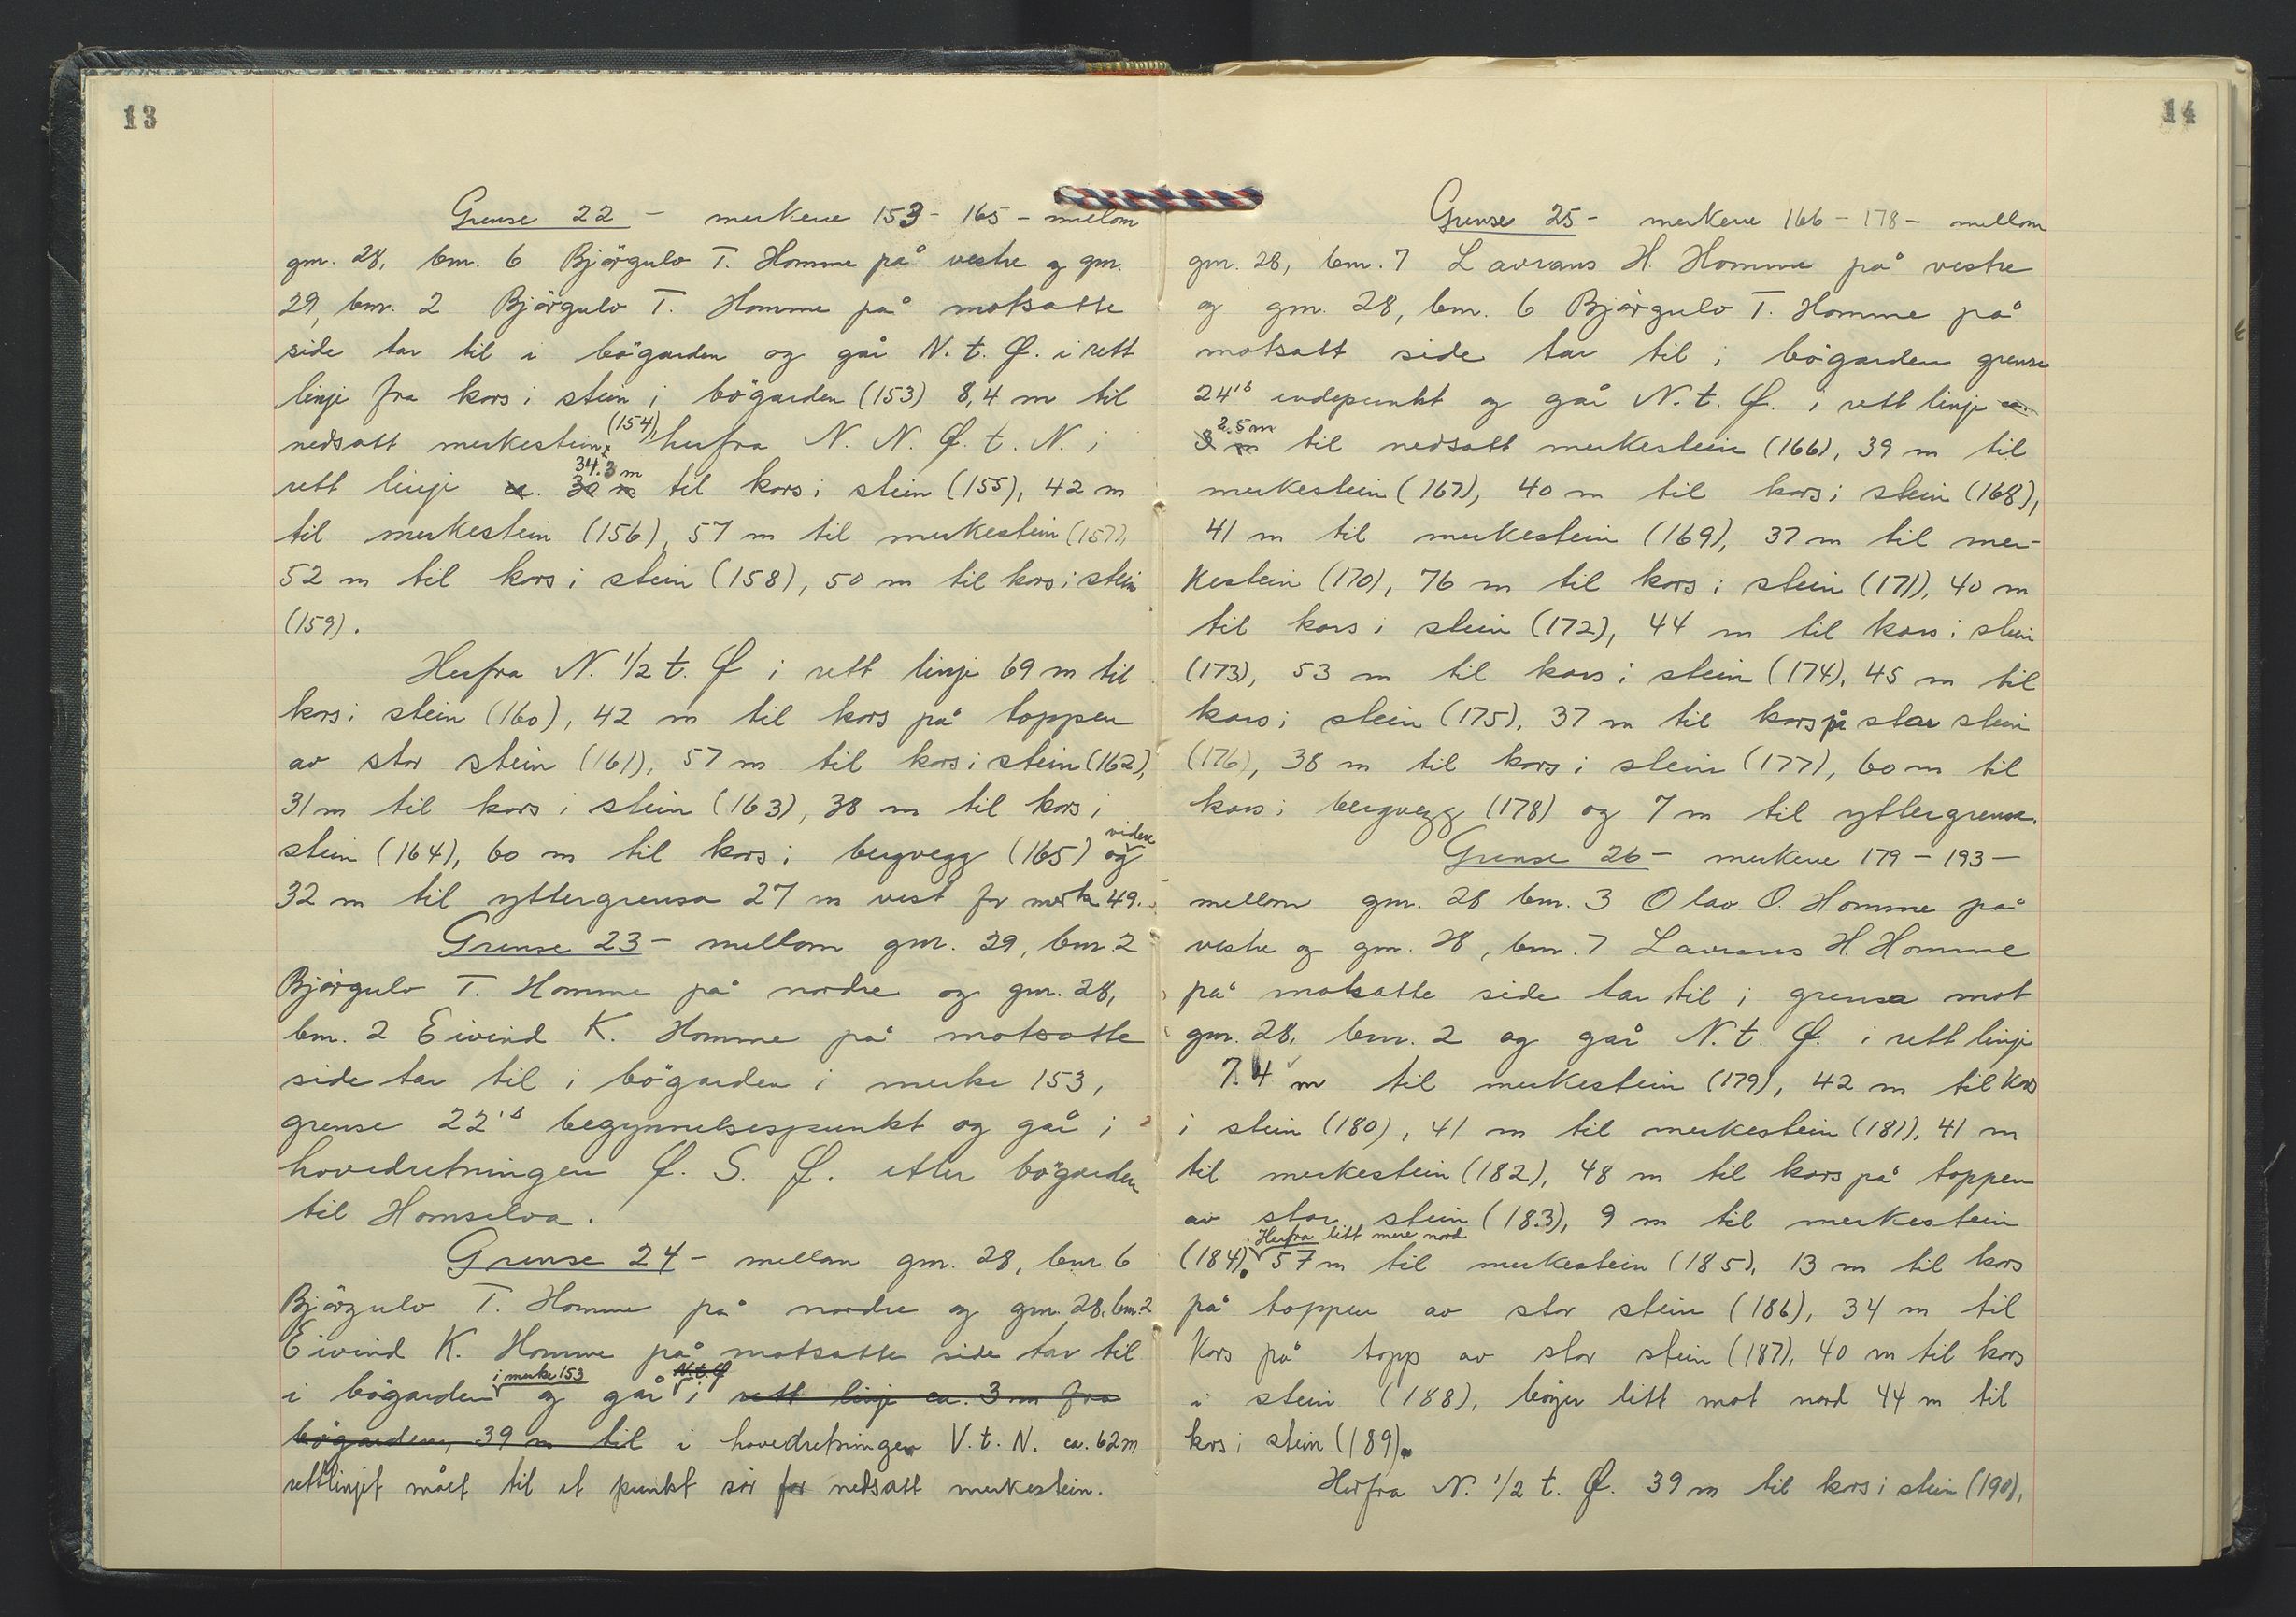 13
Grense 22 - merkene 153 - 165 - mellom
gnr. 28, bnr. 6 Bjørgulv T. Homme på vestre og gnr.
29, bnr. 2 Bjørgulv T. Homme på motsatte
side tar til i bøgarden og går N. t. Ø. i rett
linje fra kors i stein i bøgarden (153) 8,4 m til
nedsatt merkestein (154), herfra N. N. Ø. t. N. i
rett linje ca. 30 m 34.3 m til kors i stein (155), 42 m
til merkestein (156), 57 m til merkestein (157),
52 m til kors i stein (158), 50 m til kors i stein
(159).
Herfra N. 1/2 t. Ø i rett linje 69 m til
kors i stein (160), 42 m til kors på toppen
av stor stein (161), 57 m til kors i stein (162),
31 m til kors i stein (163), 38 m til kors i
stein (164), 60 m til kors i bergvegg (165) og videre
32 m til yttergrensa 27 m vest for merke 49.
Grense 23 - mellom gnr. 29, bnr. 2
Bjørgulv T. Homme på nordre og gnr. 28,
bnr. 2 Eivind K. Homme på motsatte
side tar til i bøgarden i merke 153,
grense 22's begynnelsespunkt og går i
hovedretningen Ø. S. Ø. etter bøgarden
til Homselva.
Grense 24 - mellom gnr. 28, bnr. 6
Bjørgulv T. Homme på nordre og gnr. 28, bnr. 2
Eivind K. Homme på motsatte side tar til
i bøgarden i merke 153 og går N.t.Ø i rett linje ca. 3 m fra
bøgarden, 39 m til i hovedretningen V. t. N. ca. 62 m
rettlinjet målt til et punkt sør for nedsatt merkestein.
14
Grense 25 - merkene 166 - 178 - mellom
gnr. 28, bnr. 7 Lavrans H. Homme på vestre
og gnr. 28, bnr. 6 Bjørgulv T. Homme på
motsatt side tar til i bøgarden grense
24's endepunkt og går N. t. Ø. i rett linje ca.
3 m 2.5 m til nedsatt merkestein (166), 39 m til
merkestein (167), 40 m til kors i stein (168),
41 m til merkestein (169), 37 m til mer-
kestein (170), 76 m til kors i stein (171), 40 m
til kors i stein (172), 44 m til kors i stein
(173), 53 m til kors i stein (174), 45 m til
kors i stein (175), 37 m til kors på stor stein
(176), 38 m til kors i stein (177), 60 m til
kors i bergvegg (178) og 7 m til yttergrensa.
Grense 26 - merkene 179 - 193 -
mellom gnr. 28 bnr. 3 Olav O. Homme på
vestre og gnr. 28, bnr. 7 Lavrans H. Homme
på motsatte side tar til i grensa mot
gnr. 28, bnr. 2 og går N. t. Ø. i rett linje
7.4 m til merkestein (179), 42 m til kors
i stein (180), 41 m til merkestein (181), 41 m
til merkestein (182), 48 m til kors på toppen
av stor stein (183), 9 m til merkestein
(184). Herfra litt mere nord 57 m til merkestein (185), 13 m til kors
på toppen av stor stein (186), 34 m til
kors på topp av stor stein (187), 40 m til kors
i stein (188), bøyer litt mot nord 44 m til
kors i stein (189).
Herfra N. 1/2 t. Ø. 39 m til kors i stein (190),